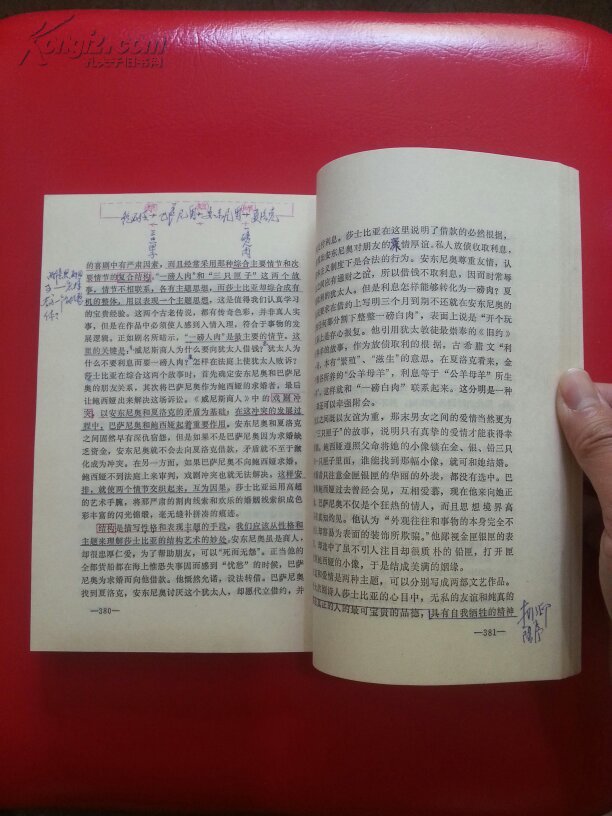 Kongfz.com
孔夫子旧书网
的喜剧中有严肃因素，而且经常采用那种综合主要情节和次
要情节的复合结构。“一磅人肉”和“三只匣子”这两个故
事，情节不相联系，各有主题思想，而莎士比亚却综合成有
机的整体，用以表现一个主题思想，这是值得我们认真学习
的宝贵经验。这两个古老传说，都有传奇色彩，并非真人实
事，但是在作品中必须使人感到入情入理，符合于事物的发
展逻辑。正如剧名所暗示，“一磅人肉”是最主要的情节。这
里的关键是：威尼斯商人为什么要向犹太人借钱？犹太人为
什么不要利息而要一磅人肉？怎样在法庭上使犹太人败诉？
莎士比亚在综合这两个故事时，首先确定安东尼奥和巴萨尼
奥的朋友关系，其次将巴萨尼奥作为鲍西娅的求婚者，最后
让鲍西娅出来解决这场诉讼。《威尼斯商人》中的戏剧冲
突，以安东尼奥和夏洛克的矛盾为基础，在这冲突的发展过
程中，巴萨尼奥和鲍西娅起着重要作用，安东尼奥和夏洛克
之间固然早有深仇宿怨，但是如果不是巴萨尼奥因为求婚缺
乏资金，安东尼奥就不会去向夏洛克借款，矛盾就不至于激
化成为冲突。在另一方面，如果巴萨尼奥不向鲍西娅求婚，
鲍西娅不到法庭上来审判，戏剧冲突也就无法解决。这样安
排，就使两个情节交织起来，互为因果。莎士比亚运用高超
的艺术手腕，将严肃的割肉线索和欢乐的婚姻线索织成色
彩丰富的闪光锦缎，毫无缝补拼凑的痕迹。
结构是描写性格和表现主题的手段，我们应该从性格和
主题来理解莎士比亚的结构艺术的妙处。安东尼奥虽是商人，
却很忠厚仁爱，为了帮助朋友，可以“死而无怨”。正当他的
全部货船都在海上惦念失事因而感到“忧愁”的时候，巴萨
尼奥为求婚而向他借款。他慨然允诺，设法转借。巴萨尼奥
找到夏洛克，安东尼奥讨厌这个犹太人，却愿代立借约，并
—380—
利息，莎士比亚在这里说明了借款的必然根据，
安东尼奥对朋友的真情厚谊。私人放债收取利息，
制度下是合法的行为。安东尼奥尊重友情，认
有通财之谊，所以借钱不取利息，因而时常辱
犹太人，但是利息怎样能够转化为一磅肉？夏
在借约上写明三个月到期不还就在安东尼奥的
部分割下整整一磅白肉”，表面上说是“开个玩
是存心报复。他引用犹太教徒崇奉的《旧约》
的故事，作为放债取利的根据。古希腊文“利
本有“繁殖”、“滋生”的意思。在夏洛克看来，金
所养的“公羊母羊”，利息等于“公羊母羊”所生
，这样就和“一磅白肉”联系起来。这分明是一种
还可以牵强附会。
之间既以友谊为重，那末男女之间的爱情当然更为
“三只匣子”的故事，说明只有真挚的爱情才能获得幸
鲍西娅遵照父命将她的小像锁在金、银、铅三只
里面，谁能找到那幅小像，就可和她结婚。
只注意金匣银匣的华丽的外表，都没有选中。巴
娅过去曾经会见，互相爱慕，现在他来向她正
巴萨尼奥不仅是个狂热的情人，而且思想境界高
知灼见。他认为“外观往往和事物的本身完全不
却容易为表面的装饰所欺骗。”他鄙视金匣银匣的
，却选中了虽不引人注目却很质朴的铅匣，打开匣
鲍西娅的小像，于是结成美满的姻缘。
和爱情是两种主题，可以分别写成两部文艺作品。
剧诗人莎士比亚的心目中，无私的友谊和纯真的
真正的人的最可宝贵的品德，具有自我牺牲的精神
—381—